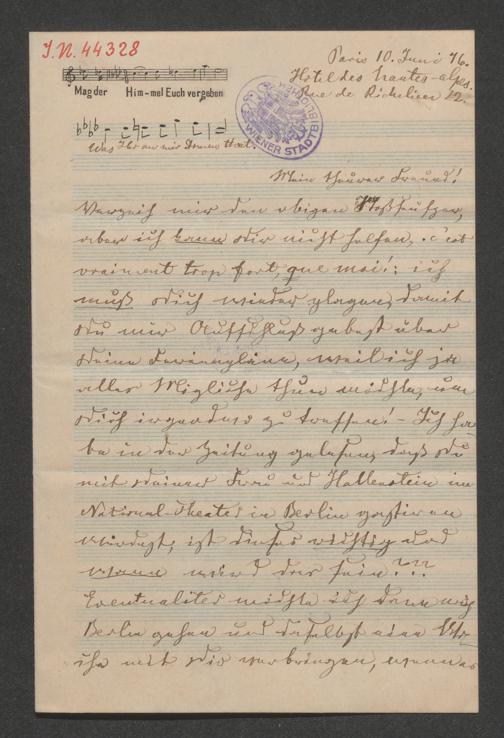 J.N. 44328
Paris 10. Juni 76.
Hotel des hautes-alpes.
Rue de Richelieu 12.
Mag der Him-mel Euch vergeben
WIENER STADTBIBLIOTHEK
Was Ihr an mir Armen thut.
Mein theurer Freund!
Verzeih mir den obigen Stoßseufzer,
aber ich kann dir nicht helfen, c'est
vraiment trop fort, que moi!: ich
muß dich wieder plagen, damit
du mir Aufschluß gebest über
deine Ferienpläne, weil ich ja
alles Mögliche thun möchte, um
dich irgendwo zu treffen! - Ich ha-
be in der Zeitung gelesen, daß du
mit deiner Frau und Hallenstein im
National-Theater in Berlin gastiren
würdest, ist dieses richtig und
wann wird das sein???
Eventualiter möchte ich dann nach
Berlin gehen und daselbst eine Wo-
che mit dir verbringen, wenn es